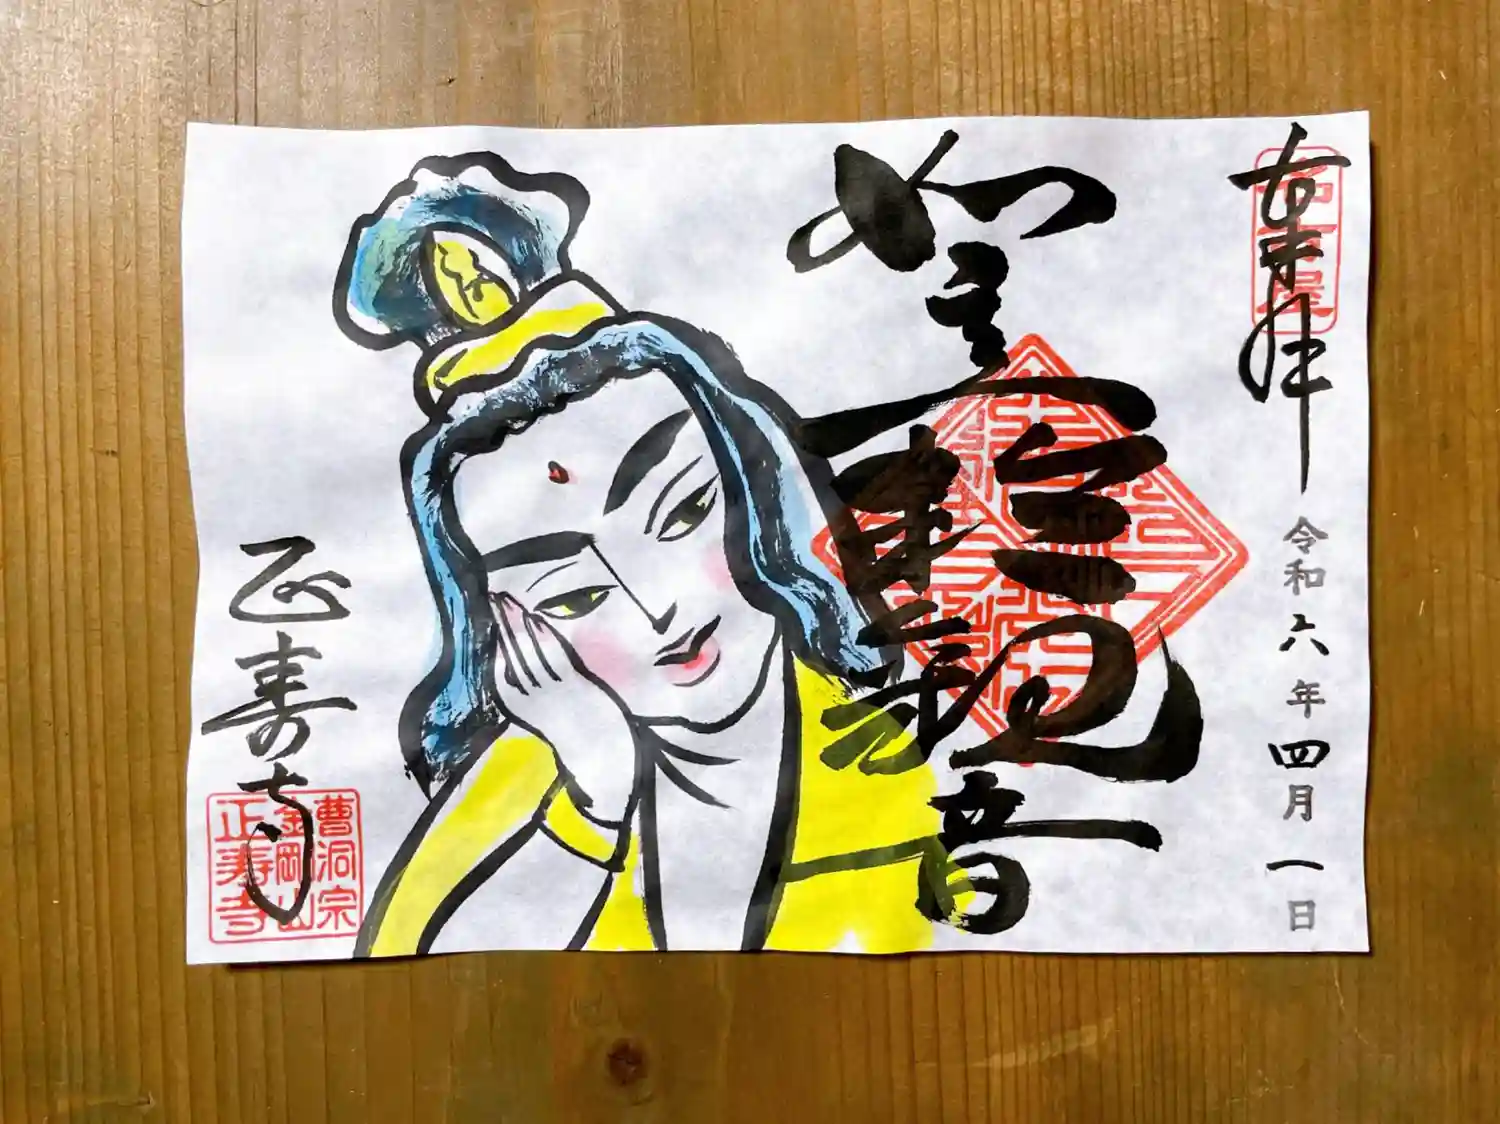 奉拝
令和六年四月一日
如意輪観音
正寿寺
曹洞宗
金岡山
正寿寺